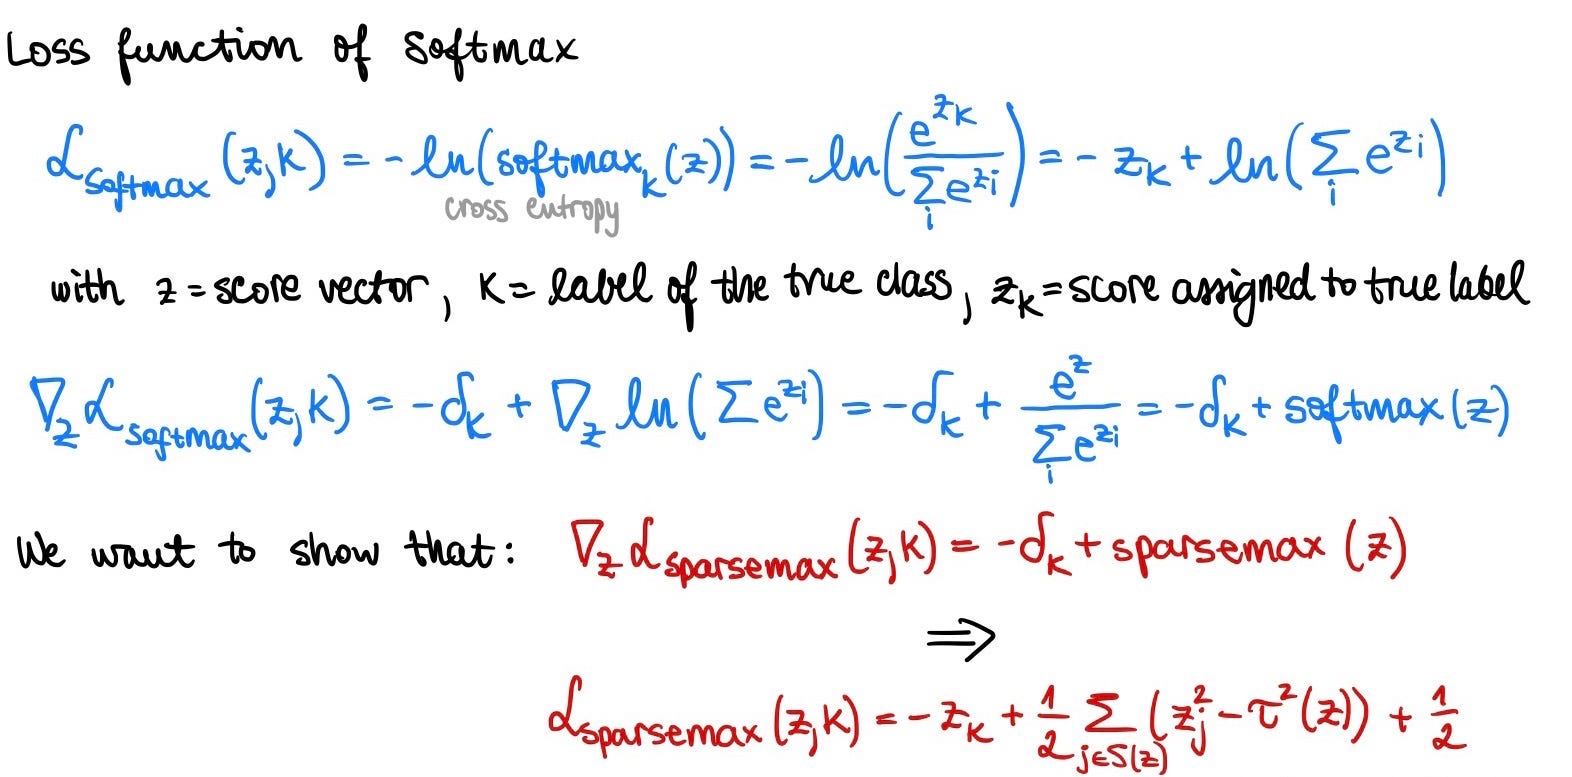 Loss function of softmax
ℒ_softmax (z,k) = - ln(softmax_k(z)) = - ln(e^{z_k} / Σ_i e^{z_i}) = - z_k + ln(Σ_i e^{z_i})
cross entropy
with z = score vector, k = label of the true class, z_k = score assigned to true label
∇_z ℒ_softmax (z,k) = -δ_k + ∇_z ln(Σ e^{z_i}) = -δ_k + e^z / Σ_i e^{z_i} = -δ_k + softmax(z)
We want to show that: ∇_z ℒ_sparsemax (z,k) = -δ_k + sparsemax (z)
⇒
ℒ_sparsemax (z,k) = - z_k + 1/2 Σ_{j∈S(z)} (z_j^2 - τ^2(z)) + 1/2